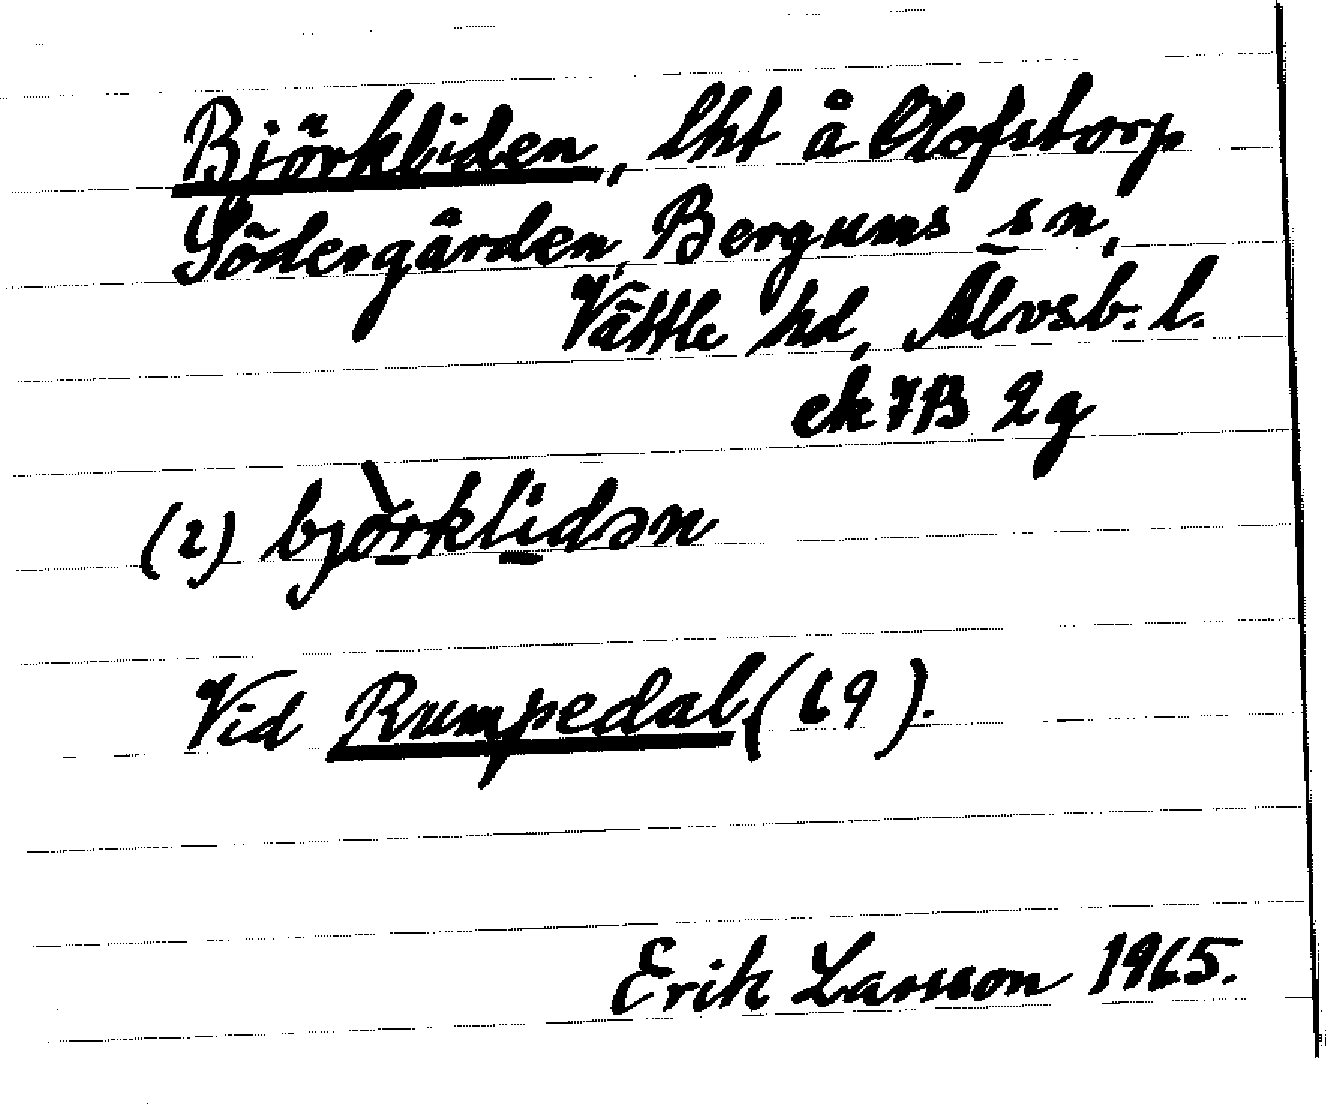 Björkliden, lht å Olofstorp
Södergården, Bergums sn,
Vättle hd, Älvsb. l.
ek 7B 2g
(2) björklidən
Vid Rumpedal (69).
Erik Larsson 1965.